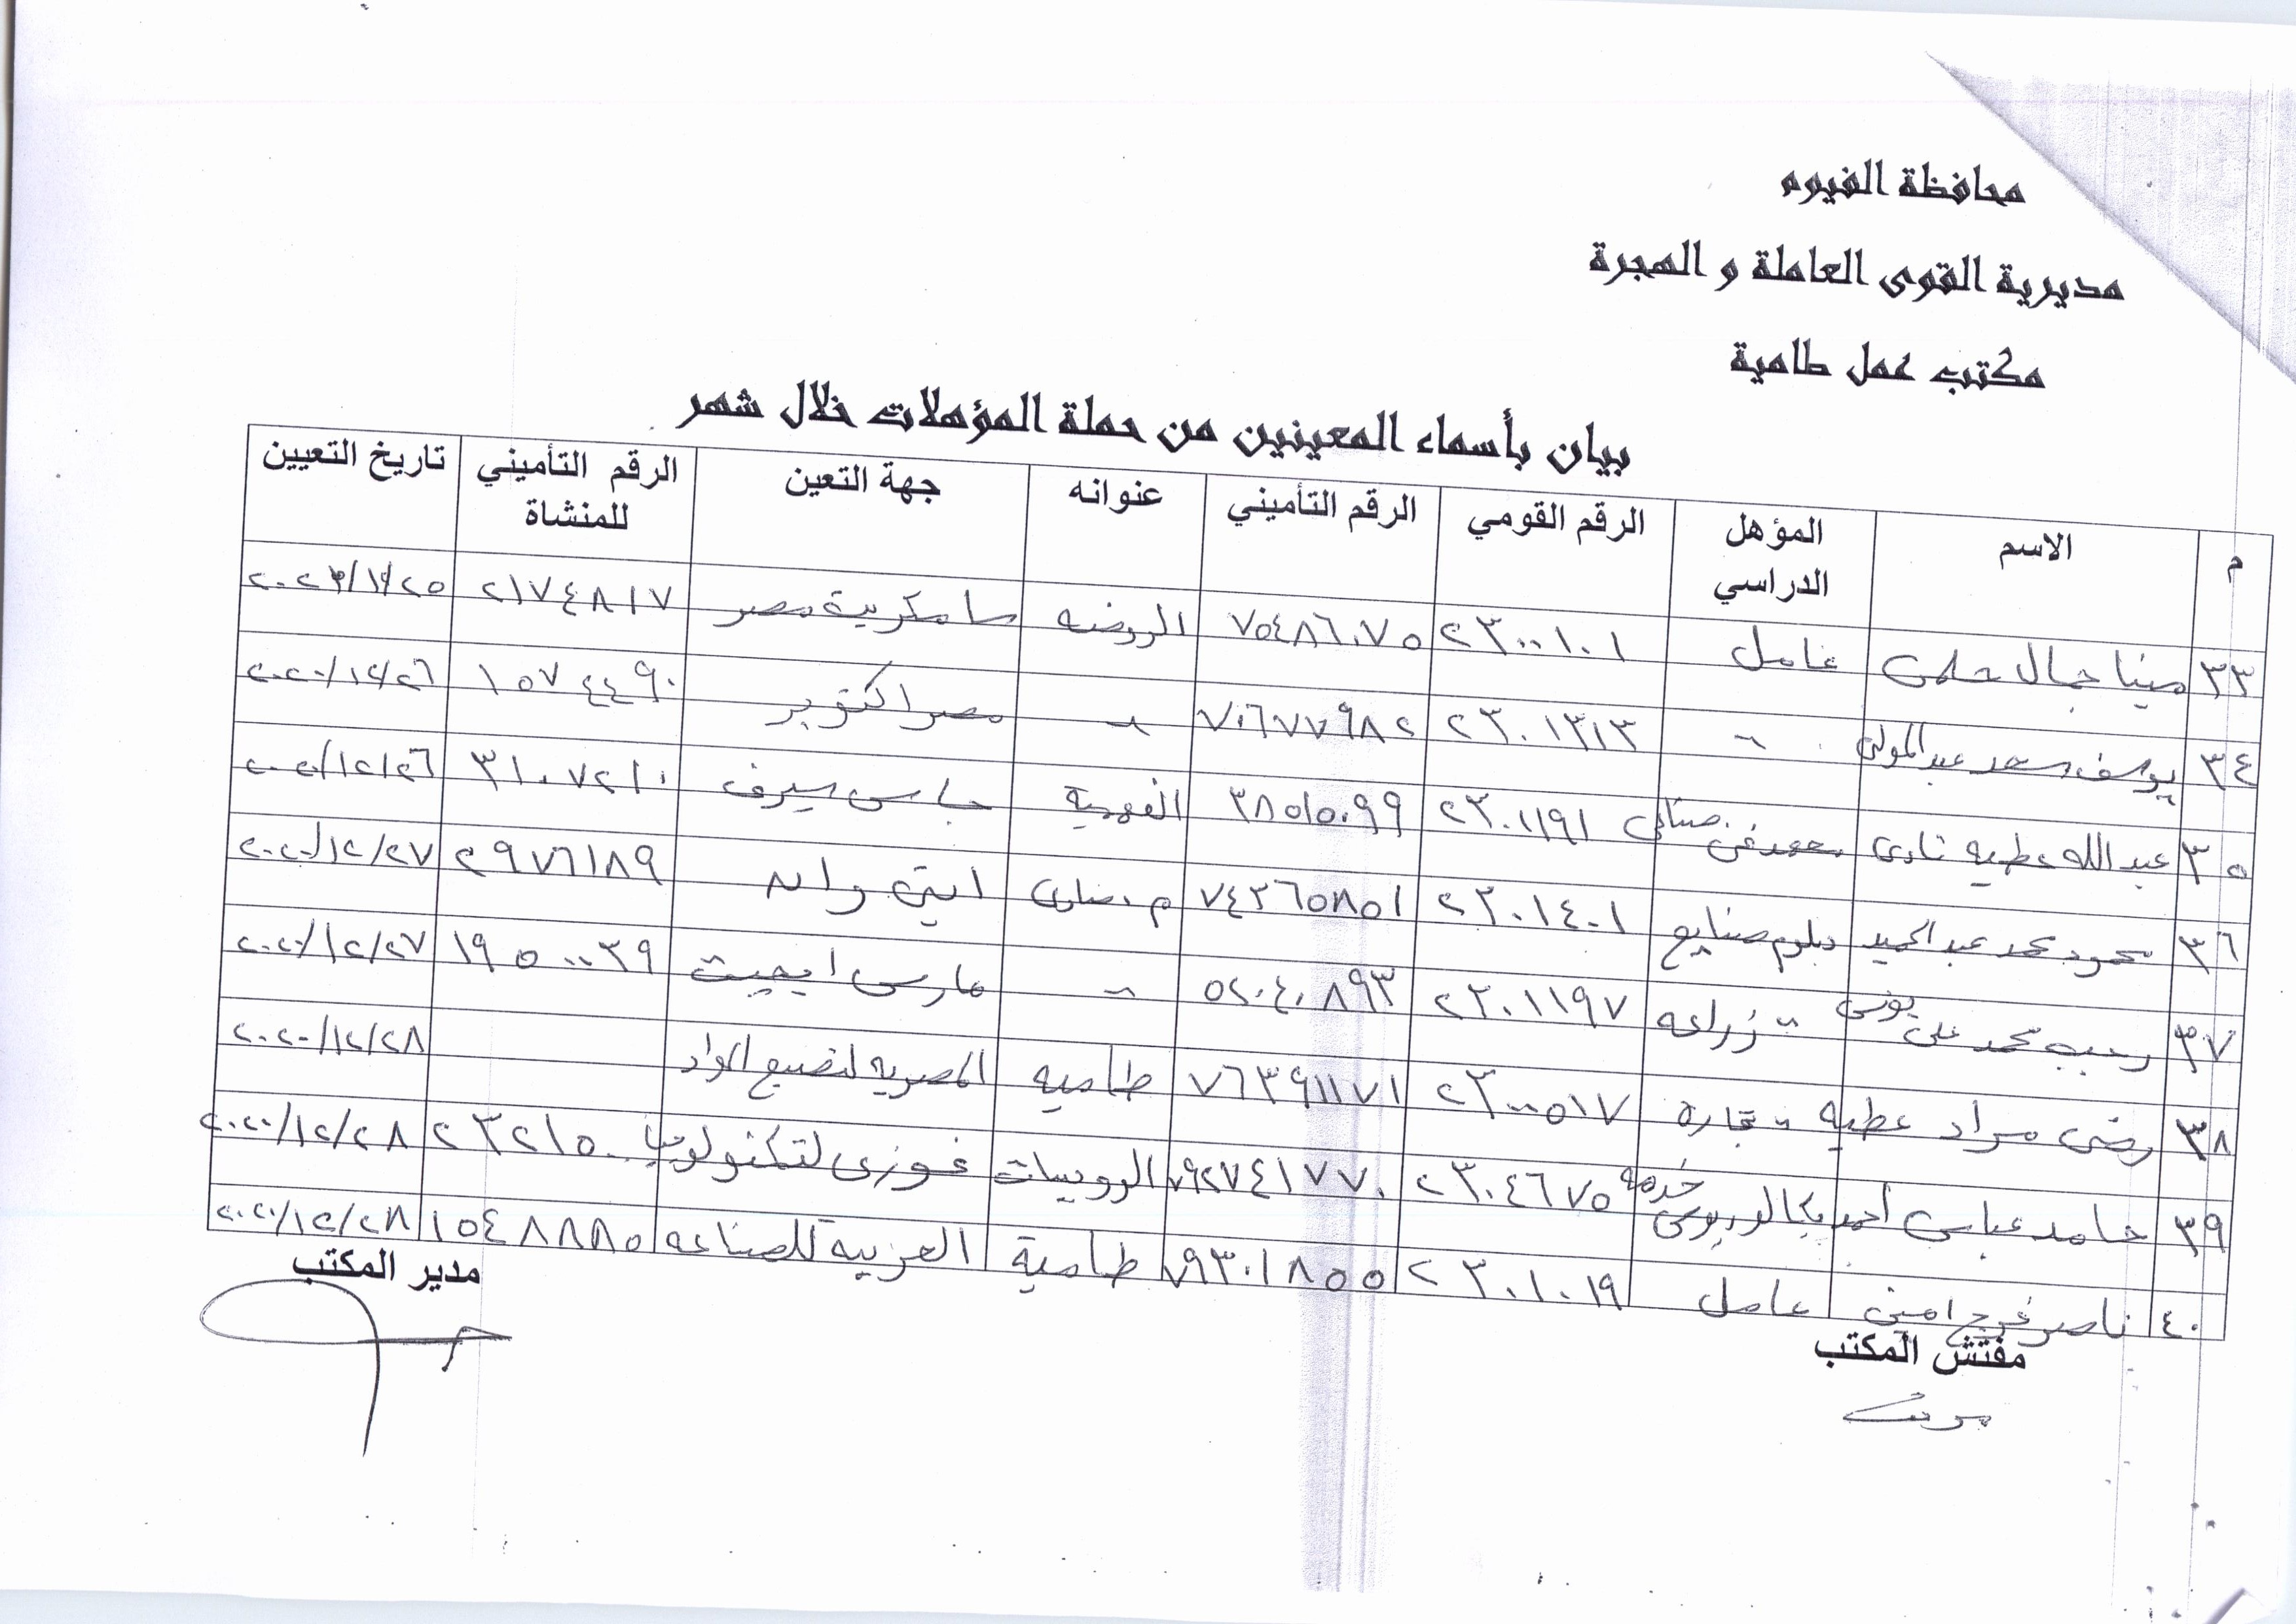 محافظة الفيوم
مديرية القوى العاملة و الهجرة
مكتب عمل طامية
بيان بأسماء المعينين من حملة المؤهلات خلال شهر
م الاسم المؤهل الدراسي الرقم القومي الرقم التأميني عنوانه جهة التعين الرقم التأميني للمنشاة تاريخ التعيين
٣٣ مينا جمال حلمى عامل ٢٣٠٠١٠١ ٧٥٤٨٦٠٧٥ الروضه سا مكرية مصر ٢١٧٤٨١٧
٣٤ يوسف سعد عبدالمولى " ٢٣٠١٣١٣ ٧٠٦٧٧٩٨٢ " مصر اكتوبر ١٥٧٤٤٩٠ ٢٠٢٠/١٢/٢٦
٣٥ عبدالله عطيه نادى معهد فنى صناعى ٢٣٠١١٩١ ٣٨٥١٥٠٩٩ الفهمية جاسى سيرف ٣١٠٧٢١٠ ٢٠٢٠/١٢/٢٦
٣٦ محمود محمد عبدالحميد دبلوم صنايع ٢٣٠١٤٠١ ٧٤٢٦٥٨٥١ ٢٩٧٦١٨٩ ٢٠٢٠/١٢/٢٧
٣٧ رجب محمد على يونس " زراعه ٢٣٠١١٩٧ ٥٢٠٤٠٨٩٣ " مارسى ايجيبت ١٩٥٠٠٣٩ ٢٠٢٠/١٢/٢٧
٣٨ رضى مراد عطيه " تجاره ٢٣٠٠٥١٧ ٧٦٣٩١١٧١ طاميه المصريه لتصنيع المواد ٢٠٢٠/١٢/٢٨
٣٩ حامد عباس أحمد بكالوريوس خدمه ٢٣٠٤٦٧٥ ٧٩٢٧٤١٧٧٠ الروبيات فوزى لتكنولوجيا ٢٣٢١٥٠٠ ٢٠٢٠/١٢/٢٨
٤٠ ناصر فرج امين عامل ٢٣٠١٠١٩ ٧٩٣٠١٨٥٥ طامية العربيه للصناعه ١٥٤٨٨٨٥ ٢٠٢٠/١٢/٢٨
مفتش المكتب مدير المكتب